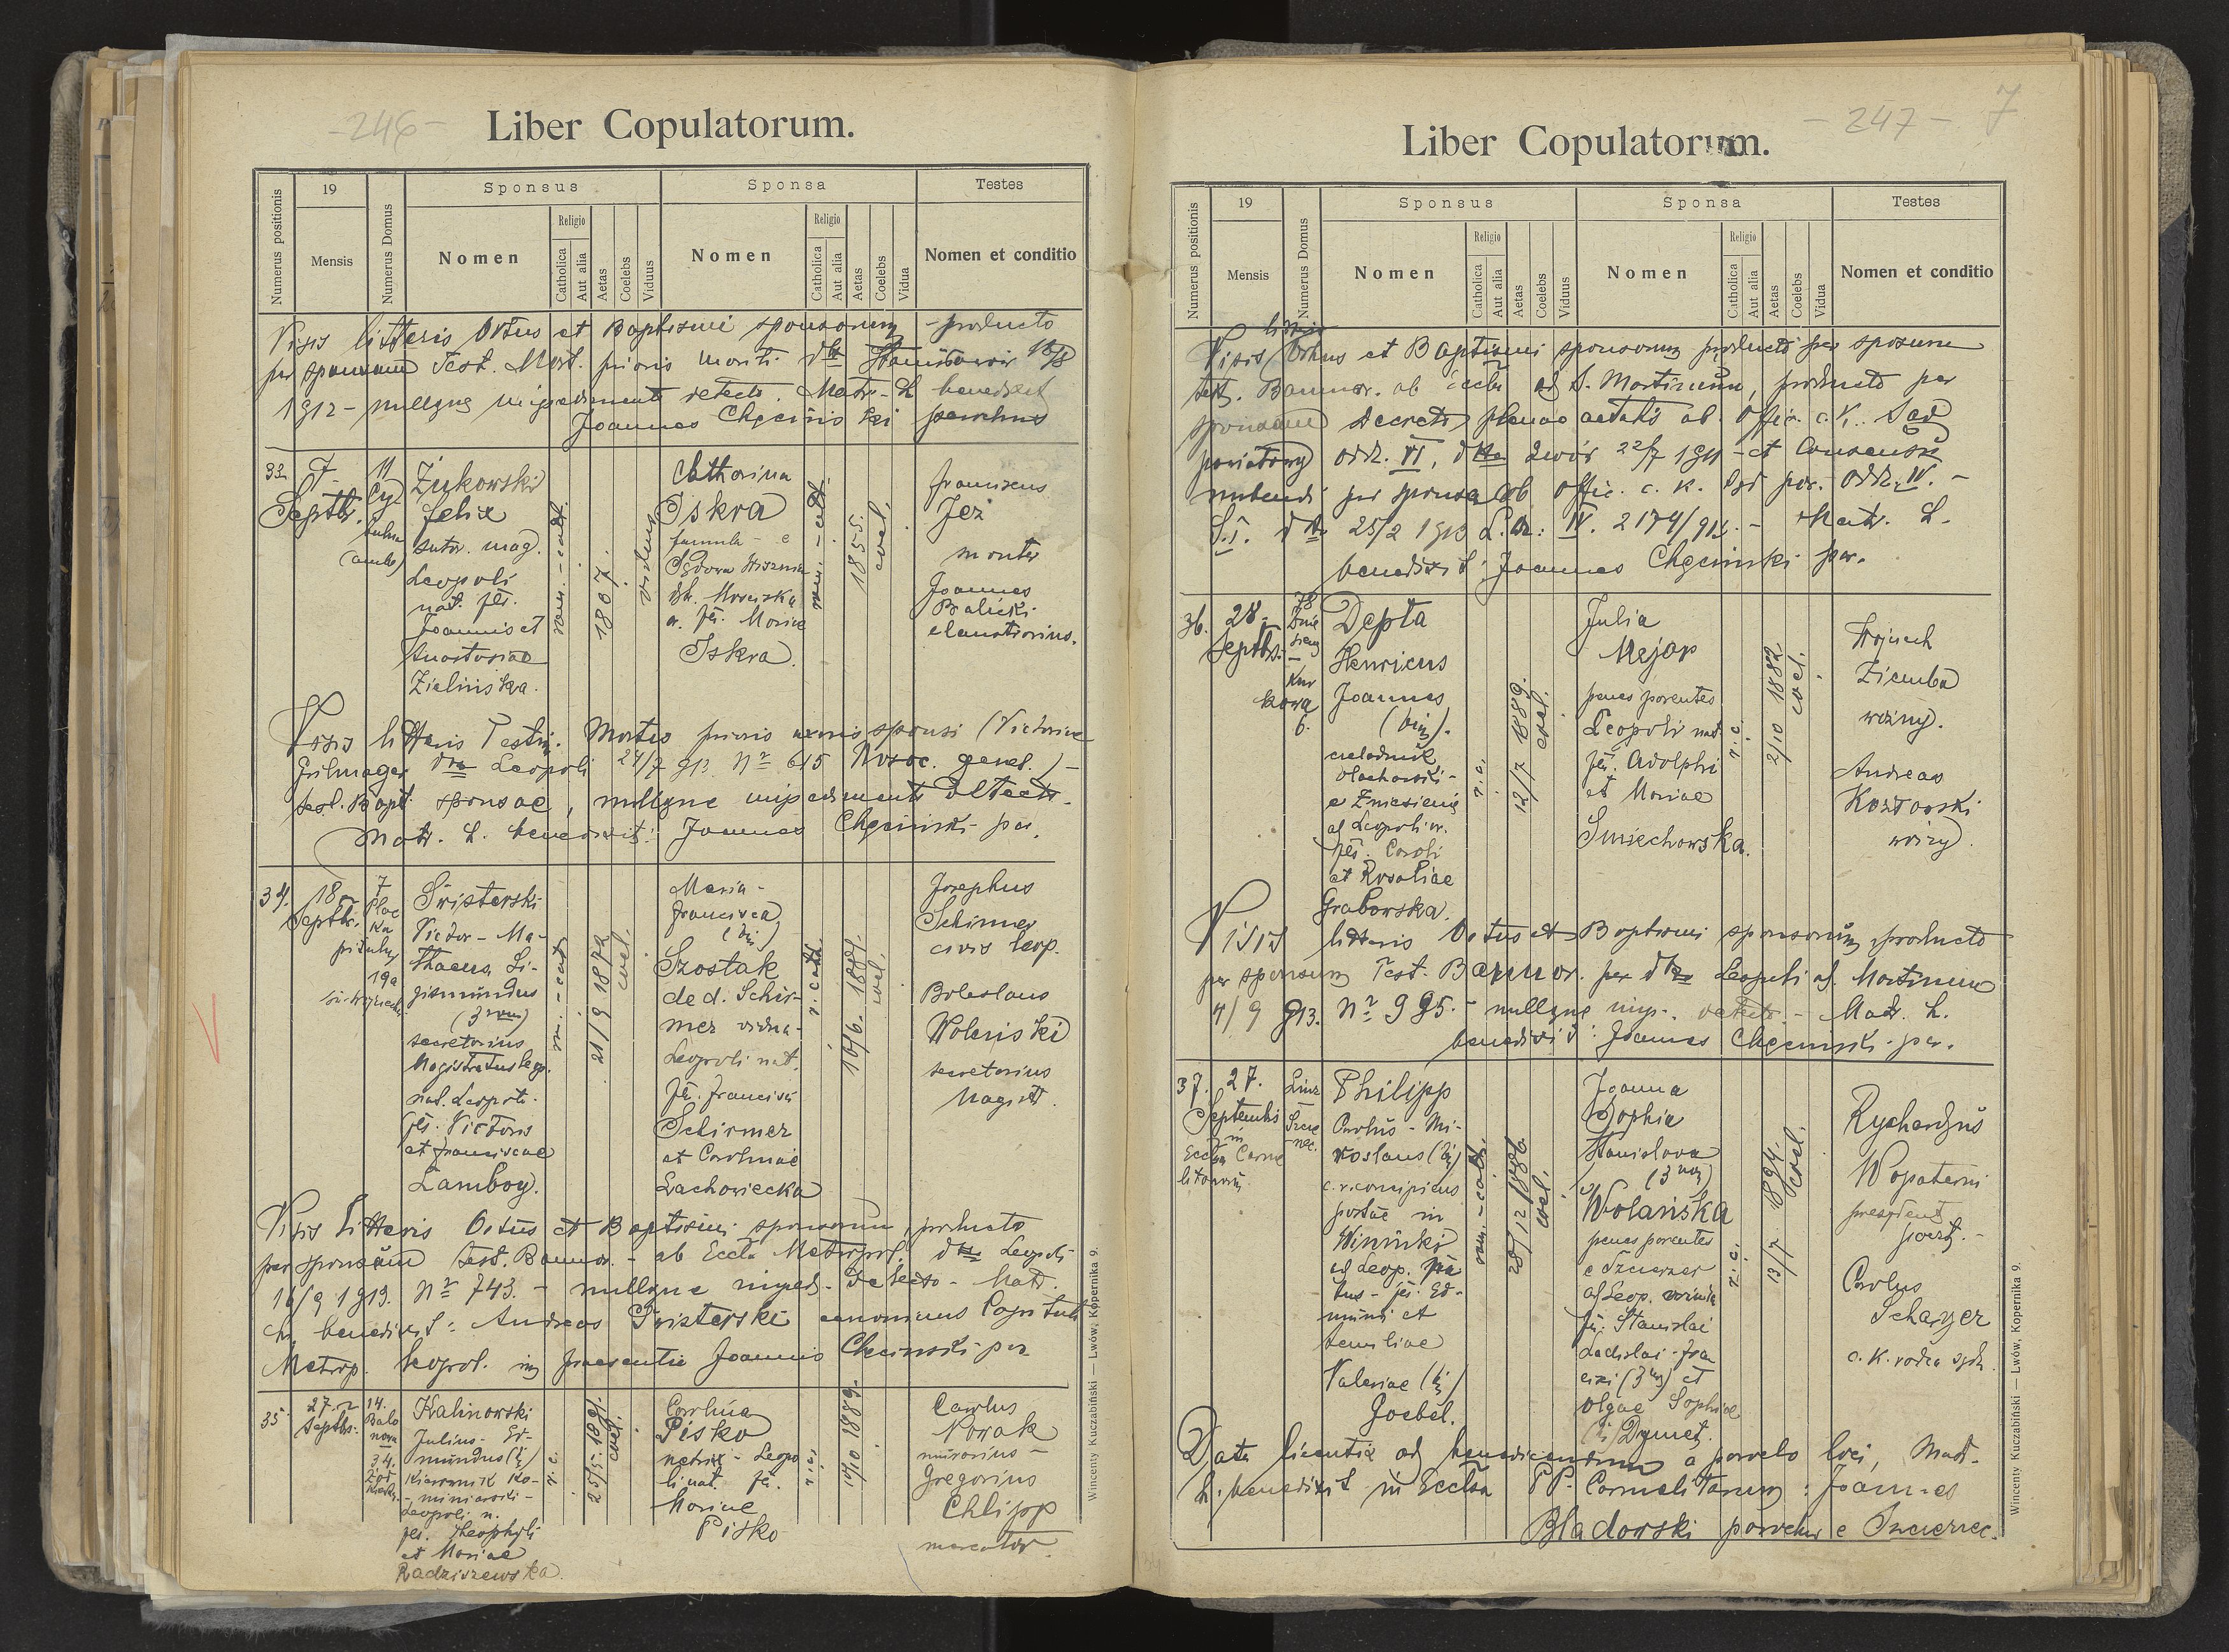 -246-
Liber Copulatorum.
Numerus positionis
19
Mensis
Numerus Domus
Sponsus
Nomen
Religio
Catholica
Aut alia
Aetas
Coelebs
Viduus
Sponsa
Nomen
Religio
Catholica
Aut alia
Aetas
Coelebs
Vidua
Testes
Nomen et conditio
Visis litteris Ortus et Baptismi sponsorum - producto
per sponsam Test. Mort. prioris mariti
1912 - nulloque impedimento detecto. Matr. L. benedixit
Joannes Chęciński parochus
33
Septbr.
11
Żukowski
Felix
sutor. mag.
Leopoli
nat. fil.
Joannis et
Anastasiae
Zielińska.
rom. - cath.
1867.
viduus
Catharina
Iskra
famula - e
a. fil. Mariae
Iskra.
rom. - cath.
1855.
coel.
Franciscus
Jeż
monter
Joannes
Balicki
claustrarius.
Visis litteris Testim. Mortis prioris uxoris sponsi (Victoriae
dto Leopoli 24/7 913. Nr 615 Nosoc. gener.) -
test. Bapt. sponsae, nulloque impedimento detecto.
Matr. L. benedixit: Joannes Chęciński par.
34.
18
Septbr.
7
Plac
Ka
pitulny
19a
Świsterski
Victor - Ma-
thaeus Si-
gismundus
(3 nom)
secretarius
Magistratus Leop.
nat. Leopoli.
fil. Victoris
et Franciscae
Lamboy.
21/9 1872
coel.
Maria -
Francisca
(bin)
Szostak
de d. Schir-
mer vidua -
Leopoli nat.
fil. Francisci
Schirmer
et Carolinae
Lachowiecka
r. cath.
10/6. 1881.
coel.
Josephus
Schirmer
civis Leop.
Boleslaus
Wolański
secretarius
Magistr.
Visis litteris Ortus et Baptismi sponsorum, producto
per sponsum test. Bannor. - ab Eccla Metropol. dto Leopoli
16/9 1913. Nr 743. - nulloque imped. detecto - Matr.
ch. benedixit: Andreas Świsterski canonicus Capituli
Metrop. Leopol. in praesentia Joannis Chęciński par
35
27.
Septbr.
14.
Kalinowski
Julius - Ed-
mundus (bin)
kierownik ko-
miniarski -
Leopoli n.
fil. Theophili
et Mariae
Radziszewska.
r. c.
25/5. 1881.
coel.
Carolina
Pisko
Leopo
li nat. fil.
Mariae
Pisko
r. c.
14/10 1889.
Carolus
Nowak
murarius -
Gregorius
Chlipp
mercator.
Wincenty Kuczabiński — Lwów, Kopernika 9.
-247-
7
Liber Copulatorum.
Numerus positionis
19
Mensis
Numerus Domus
Sponsus
Nomen
Religio
Catholica
Aut alia
Aetas
Coelebs
Viduus
Sponsa
Nomen
Religio
Catholica
Aut alia
Aetas
Coelebs
Vidua
Testes
Nomen et conditio
litteris
Visis Ortus et Baptismi sponsorum producto per sponsum
test. Bannor. ab eccla ad S. Martinum, producto per
sponsam decreto plenae aetatis ab offic. c. k. Sąd
powiatowy odd. VI, dtto Lwów 22/7 1911 - et Consensu
nubendi per sponsa ab offic. c. k. Sąd pow. odd. IV. -
S. I. dto 25/2 1913 L. cz: IV. 2174/912. - Matr. L.
benedixit Joannes Chęciński par.
36.
28.
Septbr.
78
Znie
sienie
-
Kur
kowa
6.
Depta
Henricus
Joannes
(bin).
czeladnik
blacharski -
e Zniesienie
ad Leopoli n.
fil. Caroli
et Rosaliae
Grabowska.
r. c.
12/7 1889.
coel.
Julia
Mejar
penes parentes
Leopoli nat
fil. Adolphi
et Mariae
Smiechowska.
r. c.
2/10 1882
coel.
Wojciech
Ziemba
woźny.
Andreas
Kozłowski
woźny.
Visis litteris Ortus et Baptismi sponsorum, producto
per sponsum Test. Bannor. per dto Leopoli ad Martinum
7/9 913. Nr 995. - nulloque imp. detecto. - Matr. L.
benedixit: Joannes Chęciński par.
37.
27.
Septembris
in
Eccla Carme
litarum
Szcze
rzec.
Philipp
Carolus - Mi-
roslaus (bin)
c. r. concipiens
postae in
Winniki
ad Leop. na
tus - fil. Ed-
mundi et
Aemiliae
Valeriae (bin)
Goebel.
rom. - cath.
28/12 1886.
coel.
Joanna
Sophia
Stanislava
(3 nom)
Wolańska
penes parentes
e Szczerzec
ad Leop.
fil. Stanislai
Ladislai - Fran
cisci (3 nom) et
Olgae Sophiae
(bin) Dymet.
r. c.
13/7 1894
coel.
Rychardus
Wopaterni
prezydent
poczt. -
Carolus
Schayer
c. k. radca sądu.
Data licentia ad benedicendum a parocho loci, Matr.
L. benedixit in Ecclsa PP. Carmelitarum: Joannes
Bladowski parochus e Szczerzec.
Wincenty Kuczabiński — Lwów, Kopernika 9.